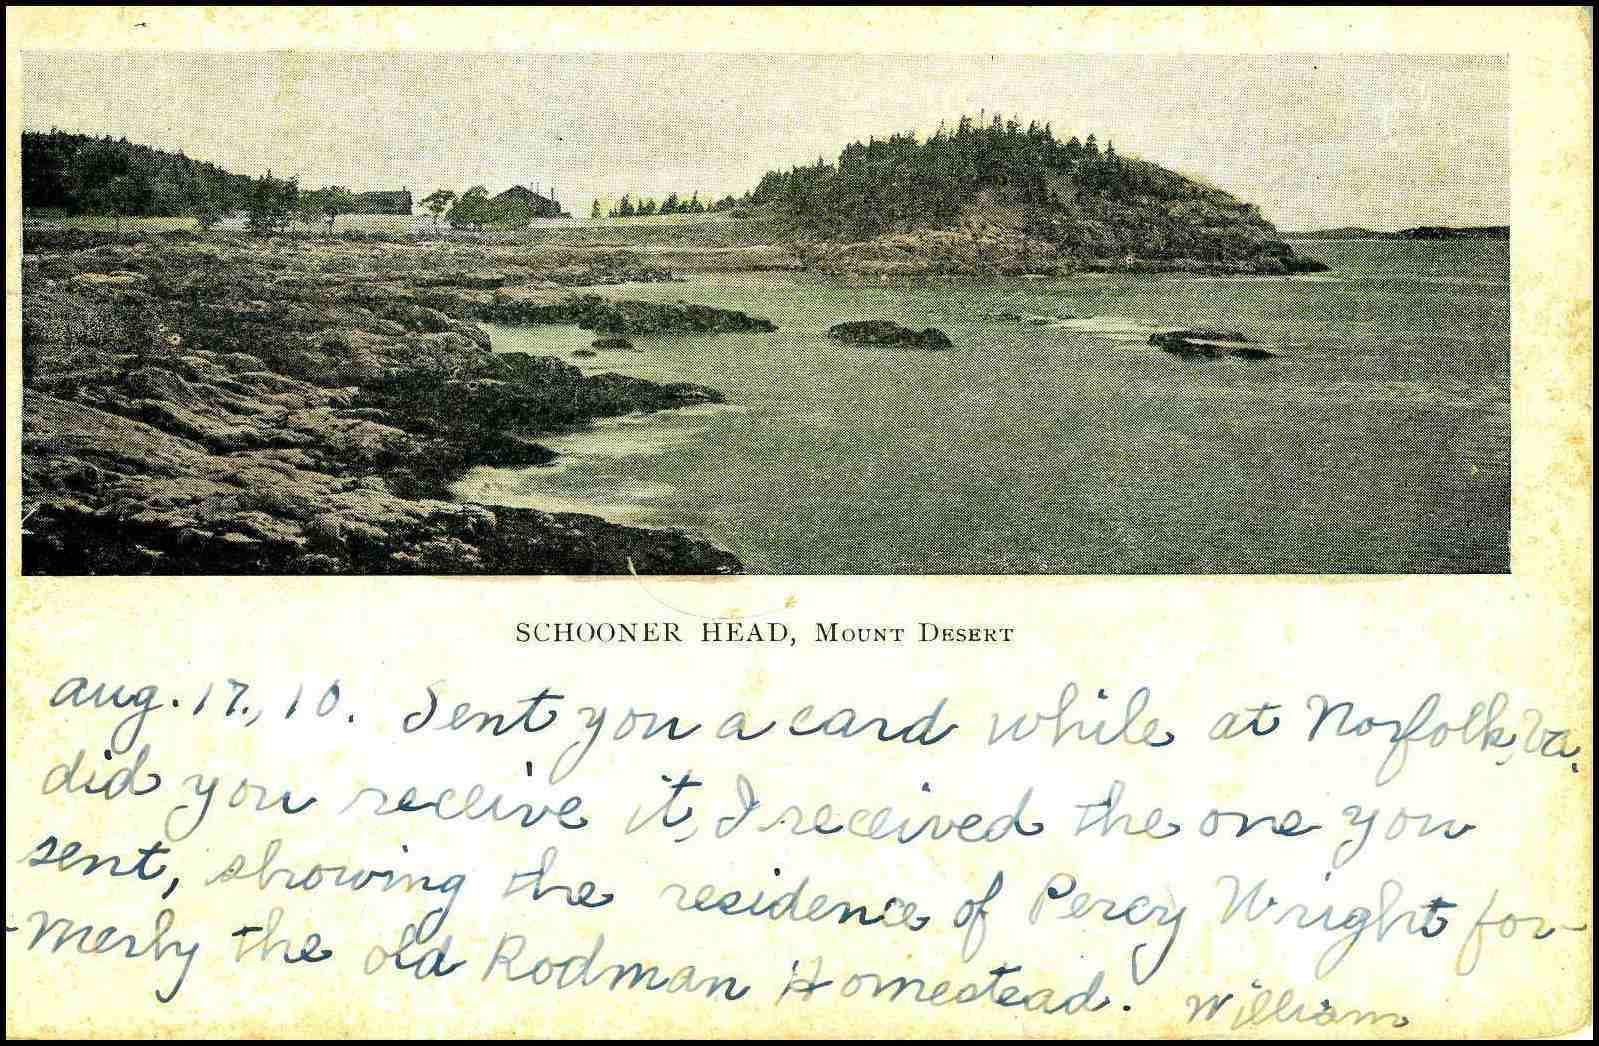 SCHOONER HEAD, MOUNT DESERT
Aug. 17., 10. Sent you a card while at Norfolk, Va.
did you receive it, I received the one you
sent, showing the residence of Percy Wright for-
-merly the old Rodman Homestead. William